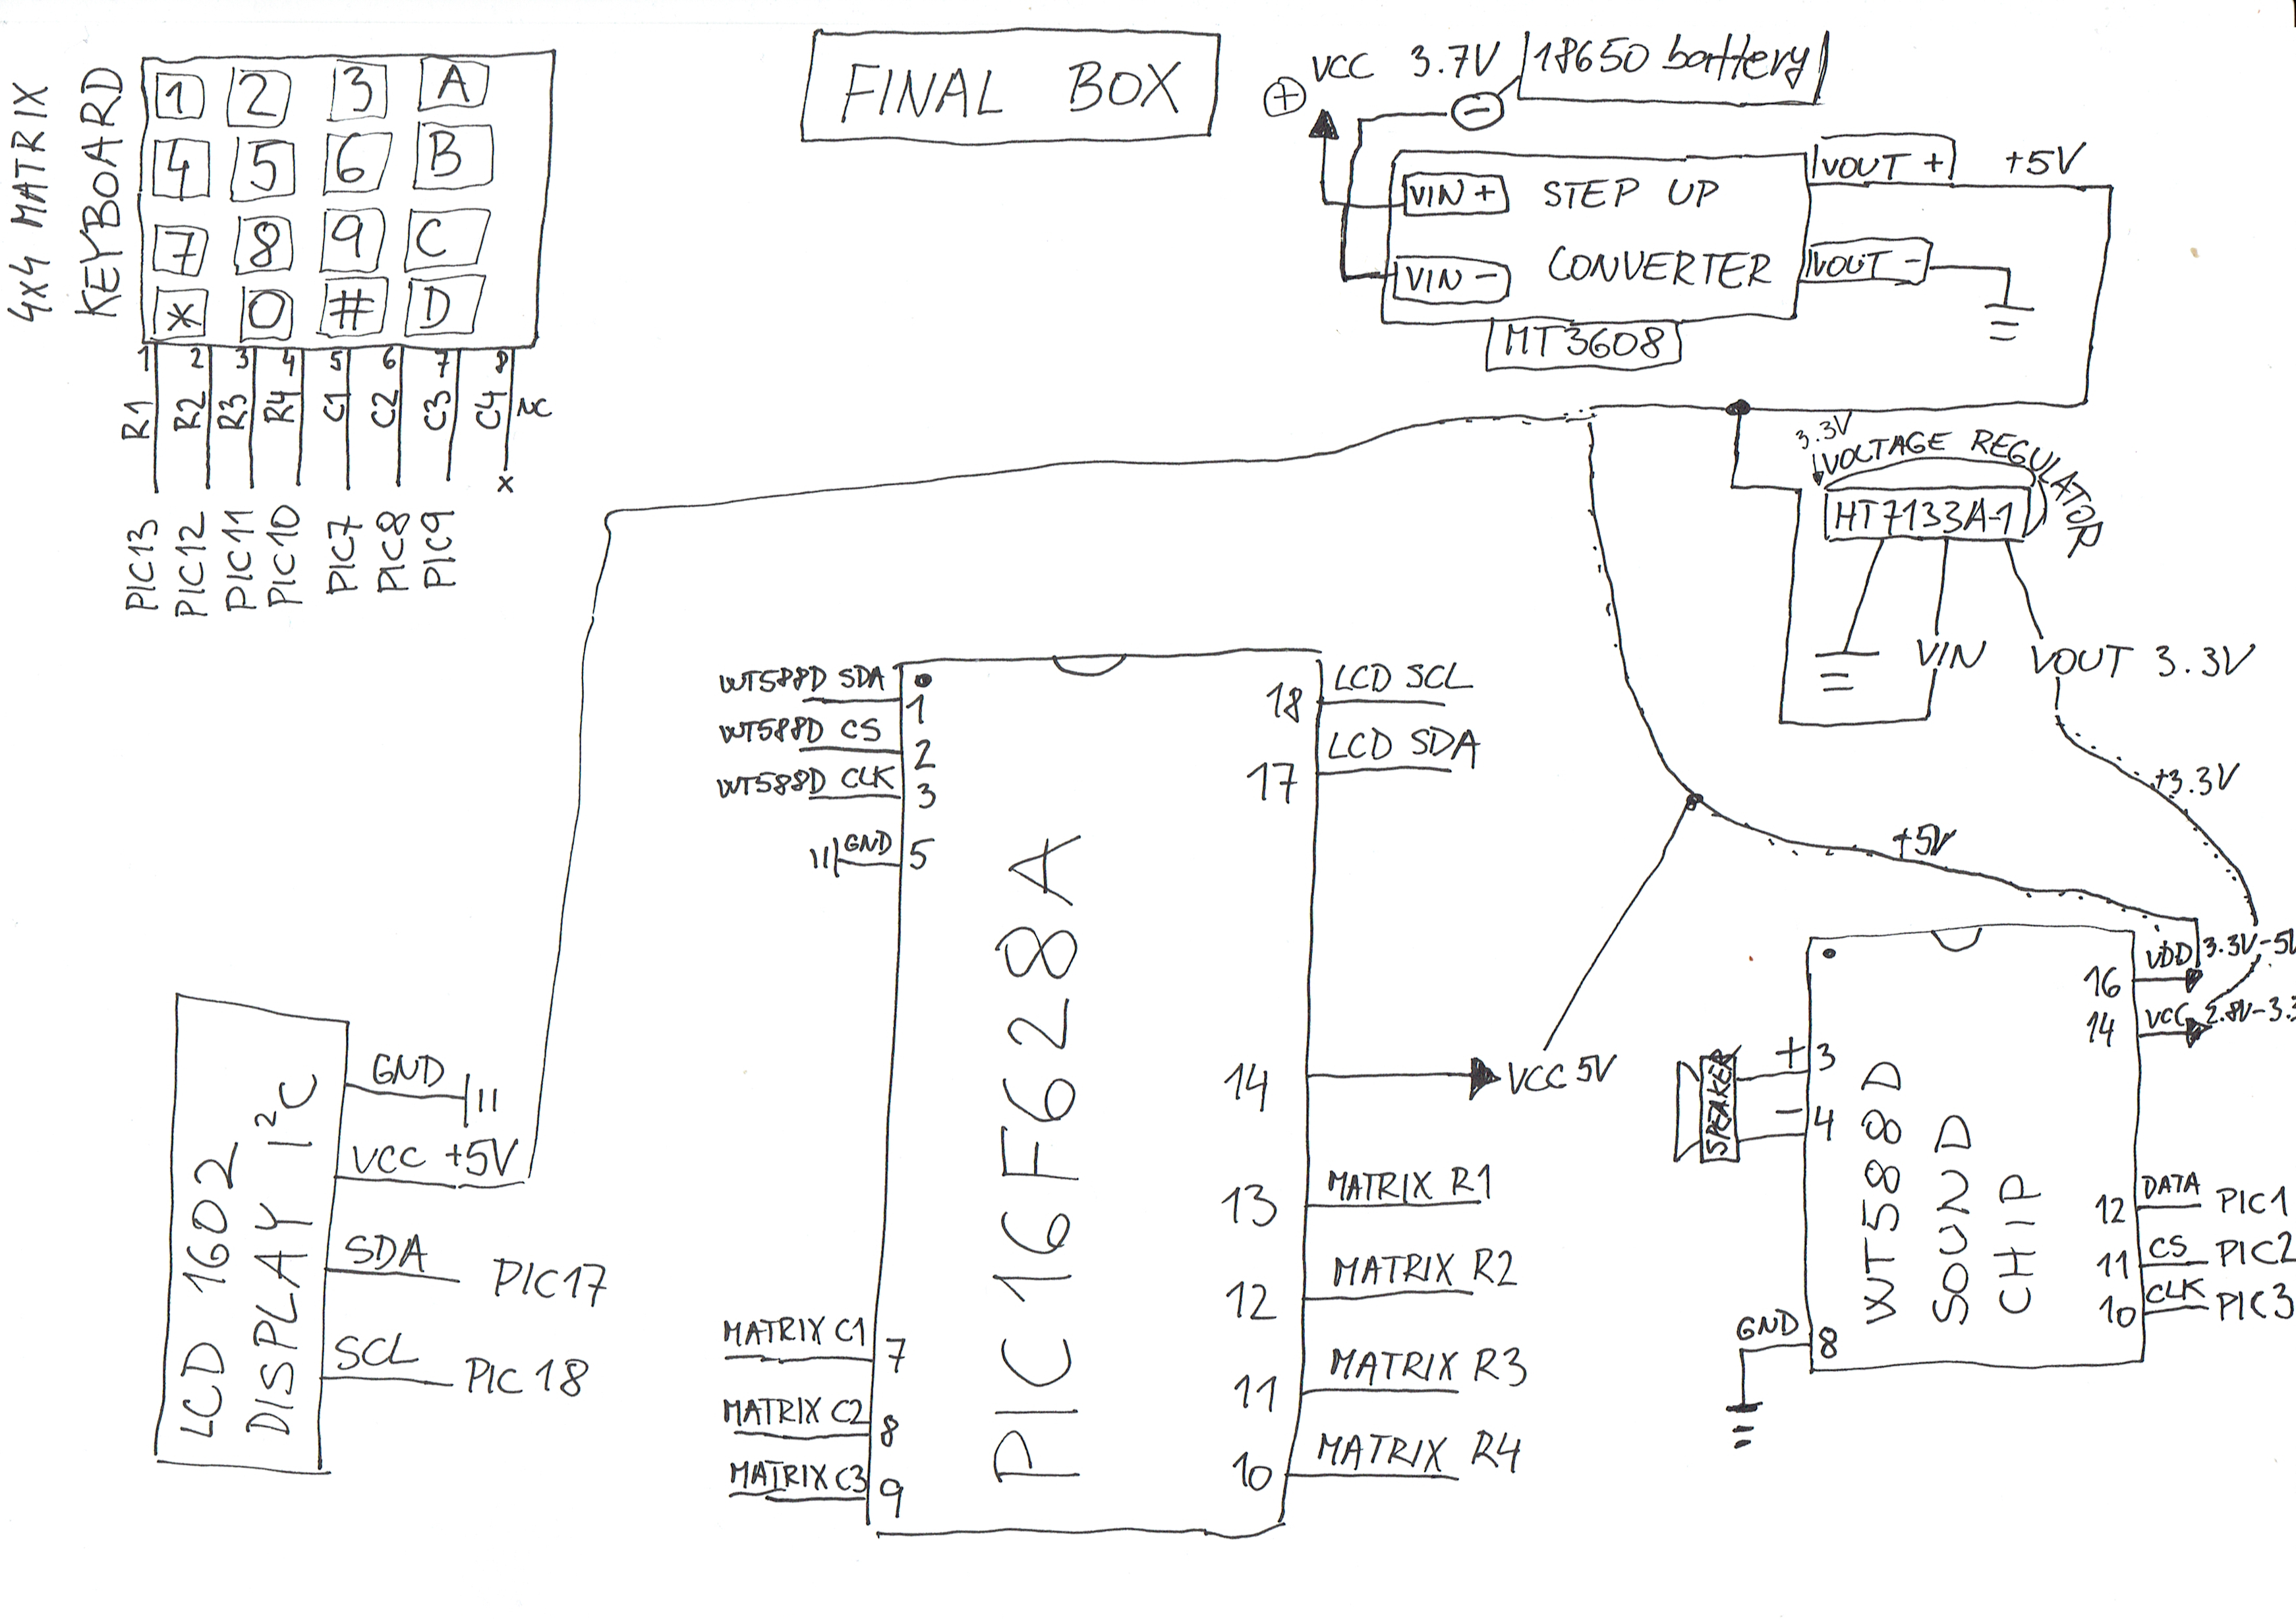 FINAL BOX
4x4 MATRIX
KEYBOARD
1 2 3 A
4 5 6 B
7 8 9 C
* 0 # D
1 2 3 4 5 6 7 8
R1 R2 R3 R4 C1 C2 C3 C4 NC
x
PIC13 PIC12 PIC11 PIC10 PIC7 PIC8 PIC9
+ VCC 3.7V 18650 battery
-
VIN + STEP UP VOUT + +5V
VIN - CONVERTER VOUT -
MT3608
3.3V
VOLTAGE REGULATOR
HT7133A-1
VIN VOUT 3.3V
+3.3V
+5V
WT588D SDA 1
WT588D CS 2
WT588D CLK 3
GND 5
MATRIX C1 7
MATRIX C2 8
MATRIX C3 9
PIC16F628A
18 LCD SCL
17 LCD SDA
14 VCC 5V
13 MATRIX R1
12 MATRIX R2
11 MATRIX R3
10 MATRIX R4
LCD 1602
DISPLAY I²C
GND
VCC +5V
SDA PIC17
SCL PIC18
SPEAKER
+ 3
- 4
GND 8
WT588D
SOUND
CHIP
16 VDD 3.3V-5V
14 VCC 2.8V-3.3
12 DATA PIC1
11 CS PIC2
10 CLK PIC3